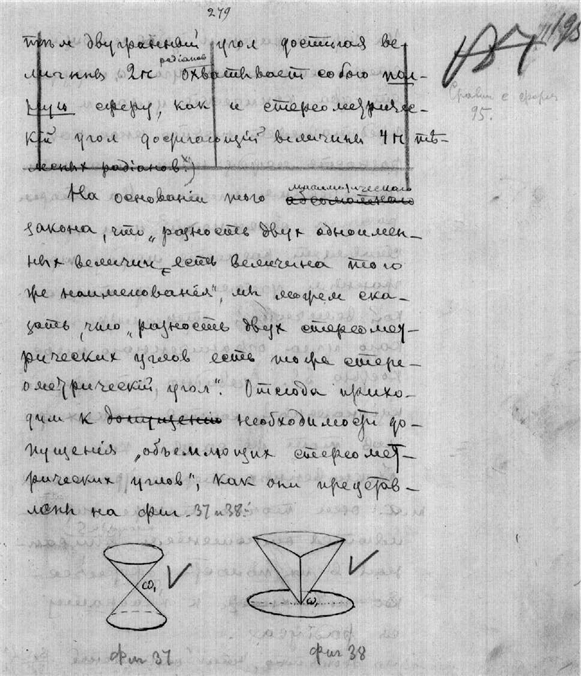 279
тѣм двугранный угол достигая ве-
личины 2π радианов охватывает собою пол-
ную сферу, как и стереометричес-
кій угол достигающій величины 4π тѣ-
лесных радіанов.*)
Сравни с
95.
На основаніи того математического
закона, что „разность двух одноимен-
ных величин есть величина того
же наименованія", мы можем ска-
зать, что „разность двух стереомет-
рических углов есть тоже стере-
ометрическій угол". Отсюда прихо-
дим к допущенію необходимости до-
пущенія „объемлющих стереомет-
рических углов", как они представ-
лены на фиг. 37 и 38:
ω₁
ω₁
Фиг 37
Фиг 38